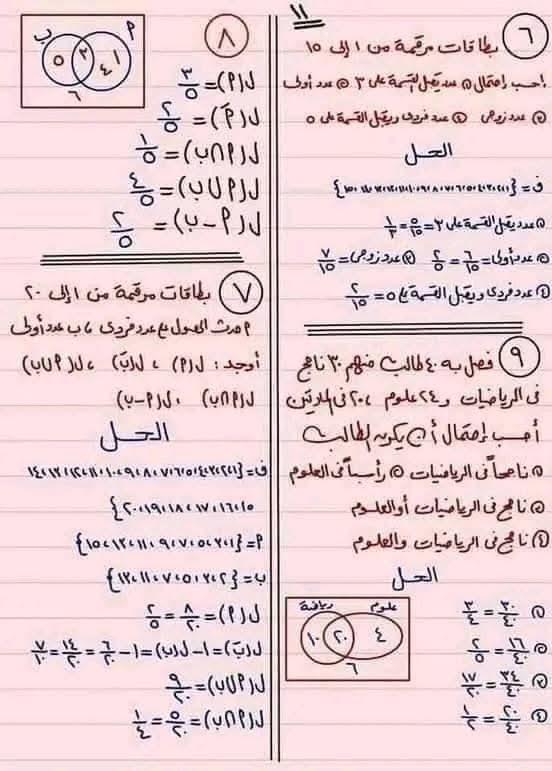 ١١
٦ بطاقات مرقمة من ١ إلى ١٥
إحسب إحتمال ① عدد يقبل القسمة على ٣ ② عدد أولى
③ عدد زوجى ④ عدد فردى ويقبل القسمة على ٥
الحل
ف = {١،٢،٣،٤،٥،٦،٧،٨،٩،١٠،١١،١٢،١٣،١٤،١٥}
① عدد يقبل القسمة على ٣ = ٥/١٥ = ١/٣
② عدد أولى = ٦/١٥ = ٢/٥ ③ عدد زوجى = ٧/١٥
④ عدد فردى ويقبل القسمة على ٥ = ٢/١٥
٩ فصل به ٤٠ طالب منهم ٣٠ ناجح
فى الرياضيات و ٢٤ علوم ، ٢٠ فى المادتين
أحسب إحتمال أن يكون الطالب
① ناجحاً فى الرياضيات ② راسباً فى العلوم
③ ناجح فى الرياضيات أو العلوم
④ ناجح فى الرياضيات والعلوم
الحل
① ٣٠/٤٠ = ٣/٤
② ١٦/٤٠ = ٢/٥
③ ٣٤/٤٠ = ١٧/٢٠
④ ٢٠/٤٠ = ١/٢
علوم رياضة
٤ ٢٠ ١٠
٦
٨
م ب
١ ٤ ٢ ٥
٦
ل(م) = ٣/٥
ل(مَ) = ٢/٥
ل(م∩ب) = ١/٥
ل(م∪ب) = ٤/٥
ل(م-ب) = ٢/٥
٧ بطاقات مرقمة من ١ إلى ٢٠
م حدث الحصول على عدد فردى ، ب عدد أولى
أوجد : ل(م) ، ل(بَ) ، ل(م∪ب)
ل(م∩ب) ، ل(م-ب)
الحل
ف = {١،٢،٣،٤،٥،٦،٧،٨،٩،١٠،١١،١٢،١٣،١٤،
١٥،١٦،١٧،١٨،١٩،٢٠}
م = {١،٣،٥،٧،٩،١١،١٣،١٥}
ب = {٢،٣،٥،٧،١١،١٣}
ل(م) = ٨/٢٠ = ٢/٥
ل(بَ) = ١ - ل(ب) = ١ - ٦/٢٠ = ١٤/٢٠ = ٧/١٠
ل(م∪ب) = ٩/٢٠
ل(م∩ب) = ٥/٢٠ = ١/٤